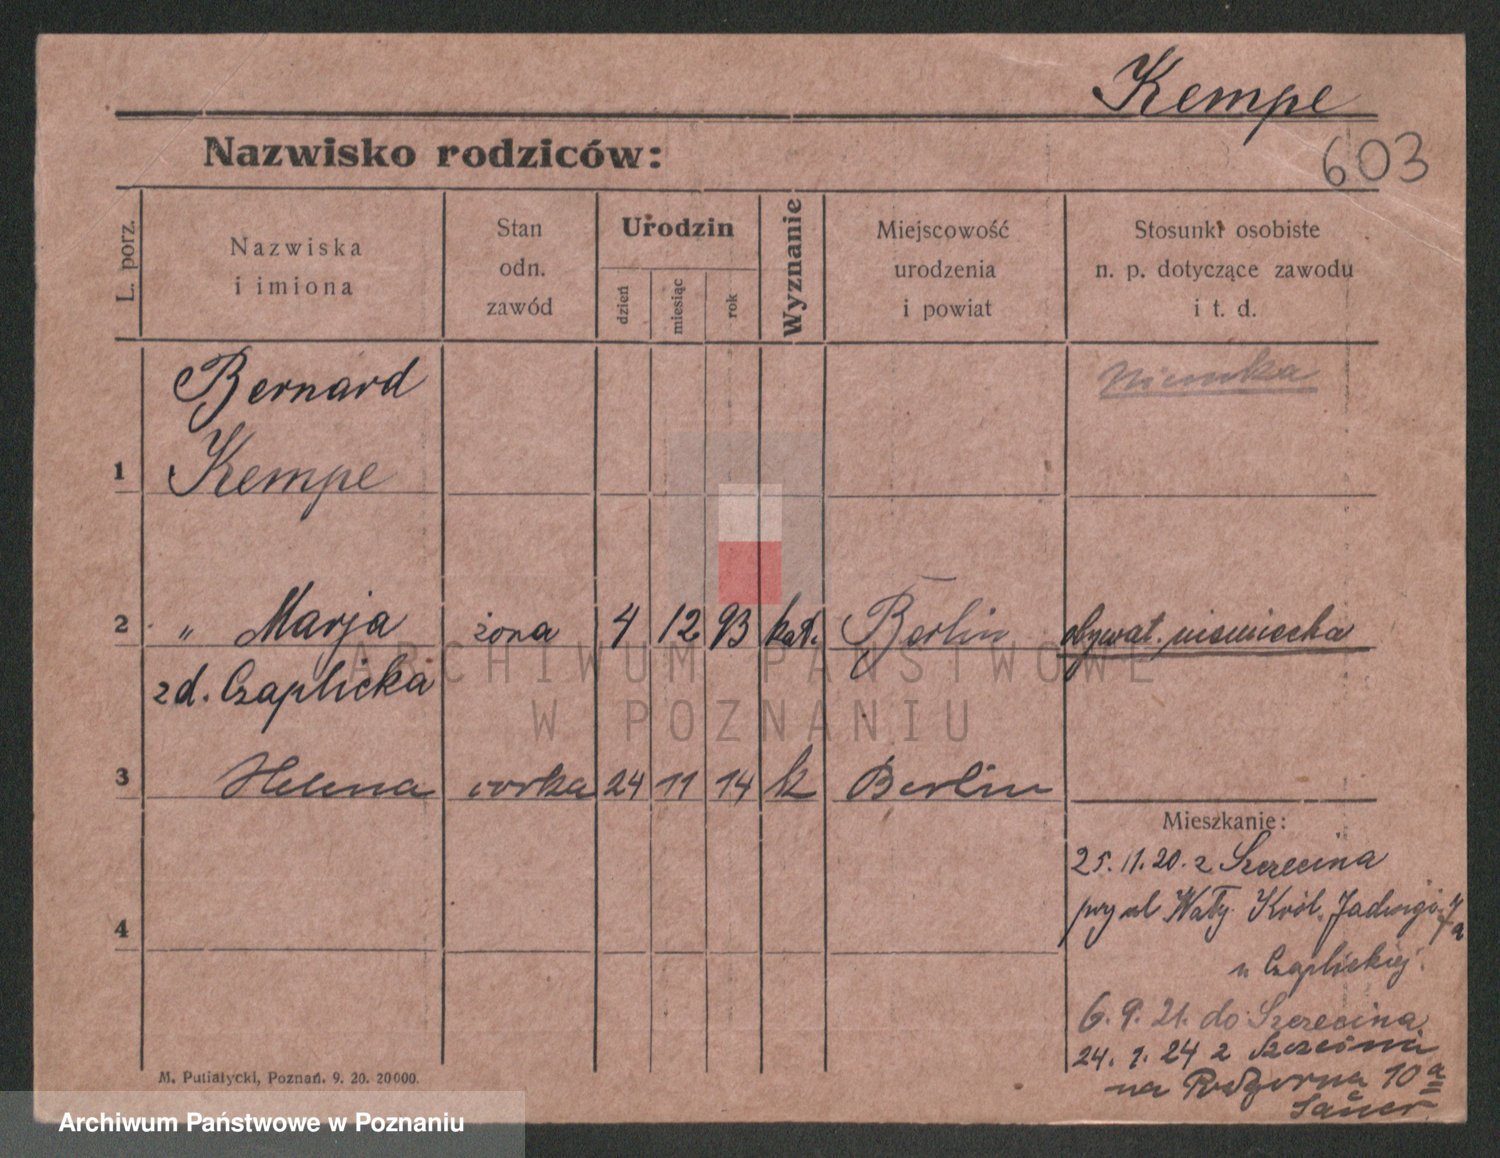 Kempe
603
Nazwisko rodziców:
L. porz.
Nazwiska
i imiona
Stan
odn.
zawód
Urodzin
dzień
miesiąc
rok
Wyznanie
Miejscowość
urodzenia
i powiat
Stosunki osobiste
n. p. dotyczące zawodu
i t. d.
Bernard
niemka
1 Kempe
2 " Marja żona 4 12 93 kat. Berlin obywat. niemiecka
zd. Czaplicka
3 Helena corka 24 11 14 k Berlin
Mieszkanie:
25. 11. 20. z Szczecina
przy ul Wały Król. Jadwigi
4
u Czaplickiej.
6. 9. 21. do Szczecina
24. 1. 24 z Szczecina
na Podgorna 10a
M. Putiatycki, Poznań. 9. 20. 20000.
ARCHIWUM PAŃSTWOWE
W POZNANIU
Archiwum Państwowe w Poznaniu